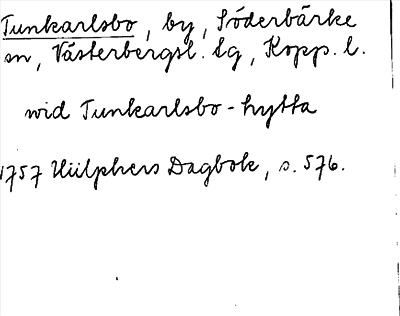 Tunkarlsbo, by, Söderbärke
sn, Västerbergsl. lg, Kopp. l.
wid Tunkarlsbo-hytta
1757 Hülphers Dagbok, s. 576.